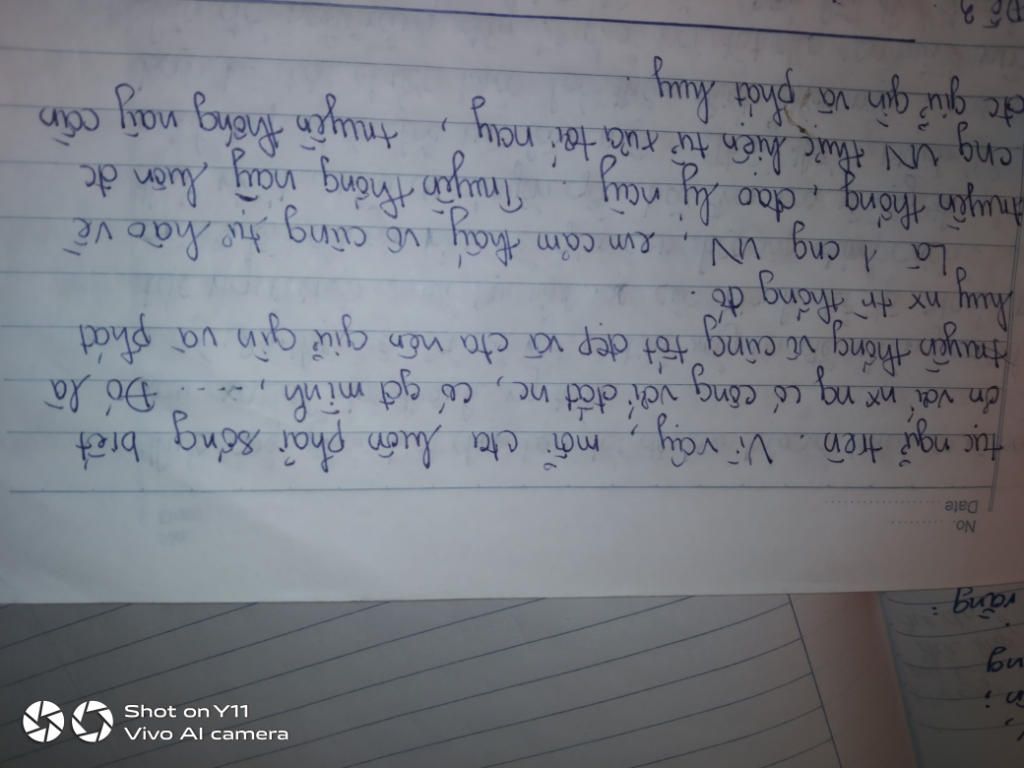 No. ..........
Date ....................
tục ngữ trên. Vì vậy, mỗi cta luôn phải sống biết
ơn vs nx ng có công với đất nc, có gđ mình, ..... Đó là
truyền thống vô cùng tốt đẹp và cta nên giữ gìn và phát
huy nx tr thống đó.
Là 1 cng VN, em cảm thấy vô cùng tự hào về
truyền thống, đạo lý này. Truyền thống này luôn đc
cng VN thực hiện từ xưa tới nay, truyền thống này cần
đc giữ gìn và phát huy.
Đề 3
rằng:
ng
Shot on Y11
Vivo AI camera